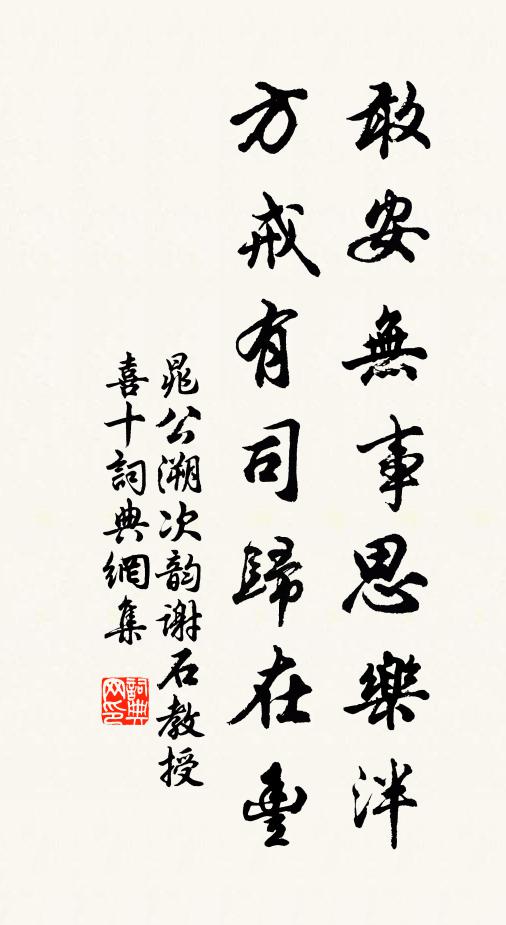 敢安無事思樂泮
方戒有司歸在豊
晁公溯次韵謝石教授
喜十詞典網集
詞典网印